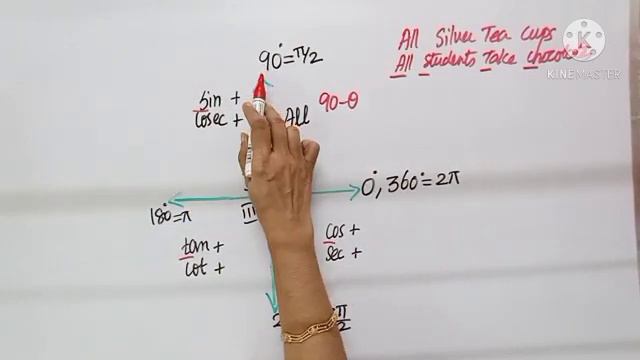 All Silver Tea Cups
All Students Take
KINEMASTER
90°=π/2
Sin +
Cosec +
All
90-θ
0°, 360°=2π
180=π
III
tan +
cot +
cos +
sec +
2
π/2